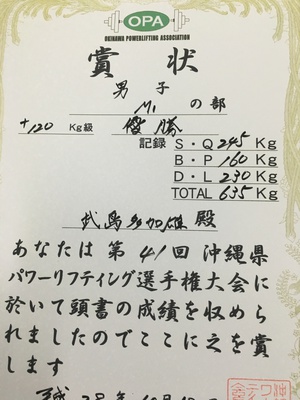 OPA
OKINAWA POWERLIFTING ASSOCIATION
賞状
男子
M1 の部
+120 Kg級 優勝
記録 S・Q 245 Kg
B・P 160 Kg
D・L 230 Kg
TOTAL 635 Kg
武島多加雄 殿
あなたは第41回沖縄県
パワーリフティング選手権大会に
於いて頭書の成績を収めら
れましたのでここに之を賞
します